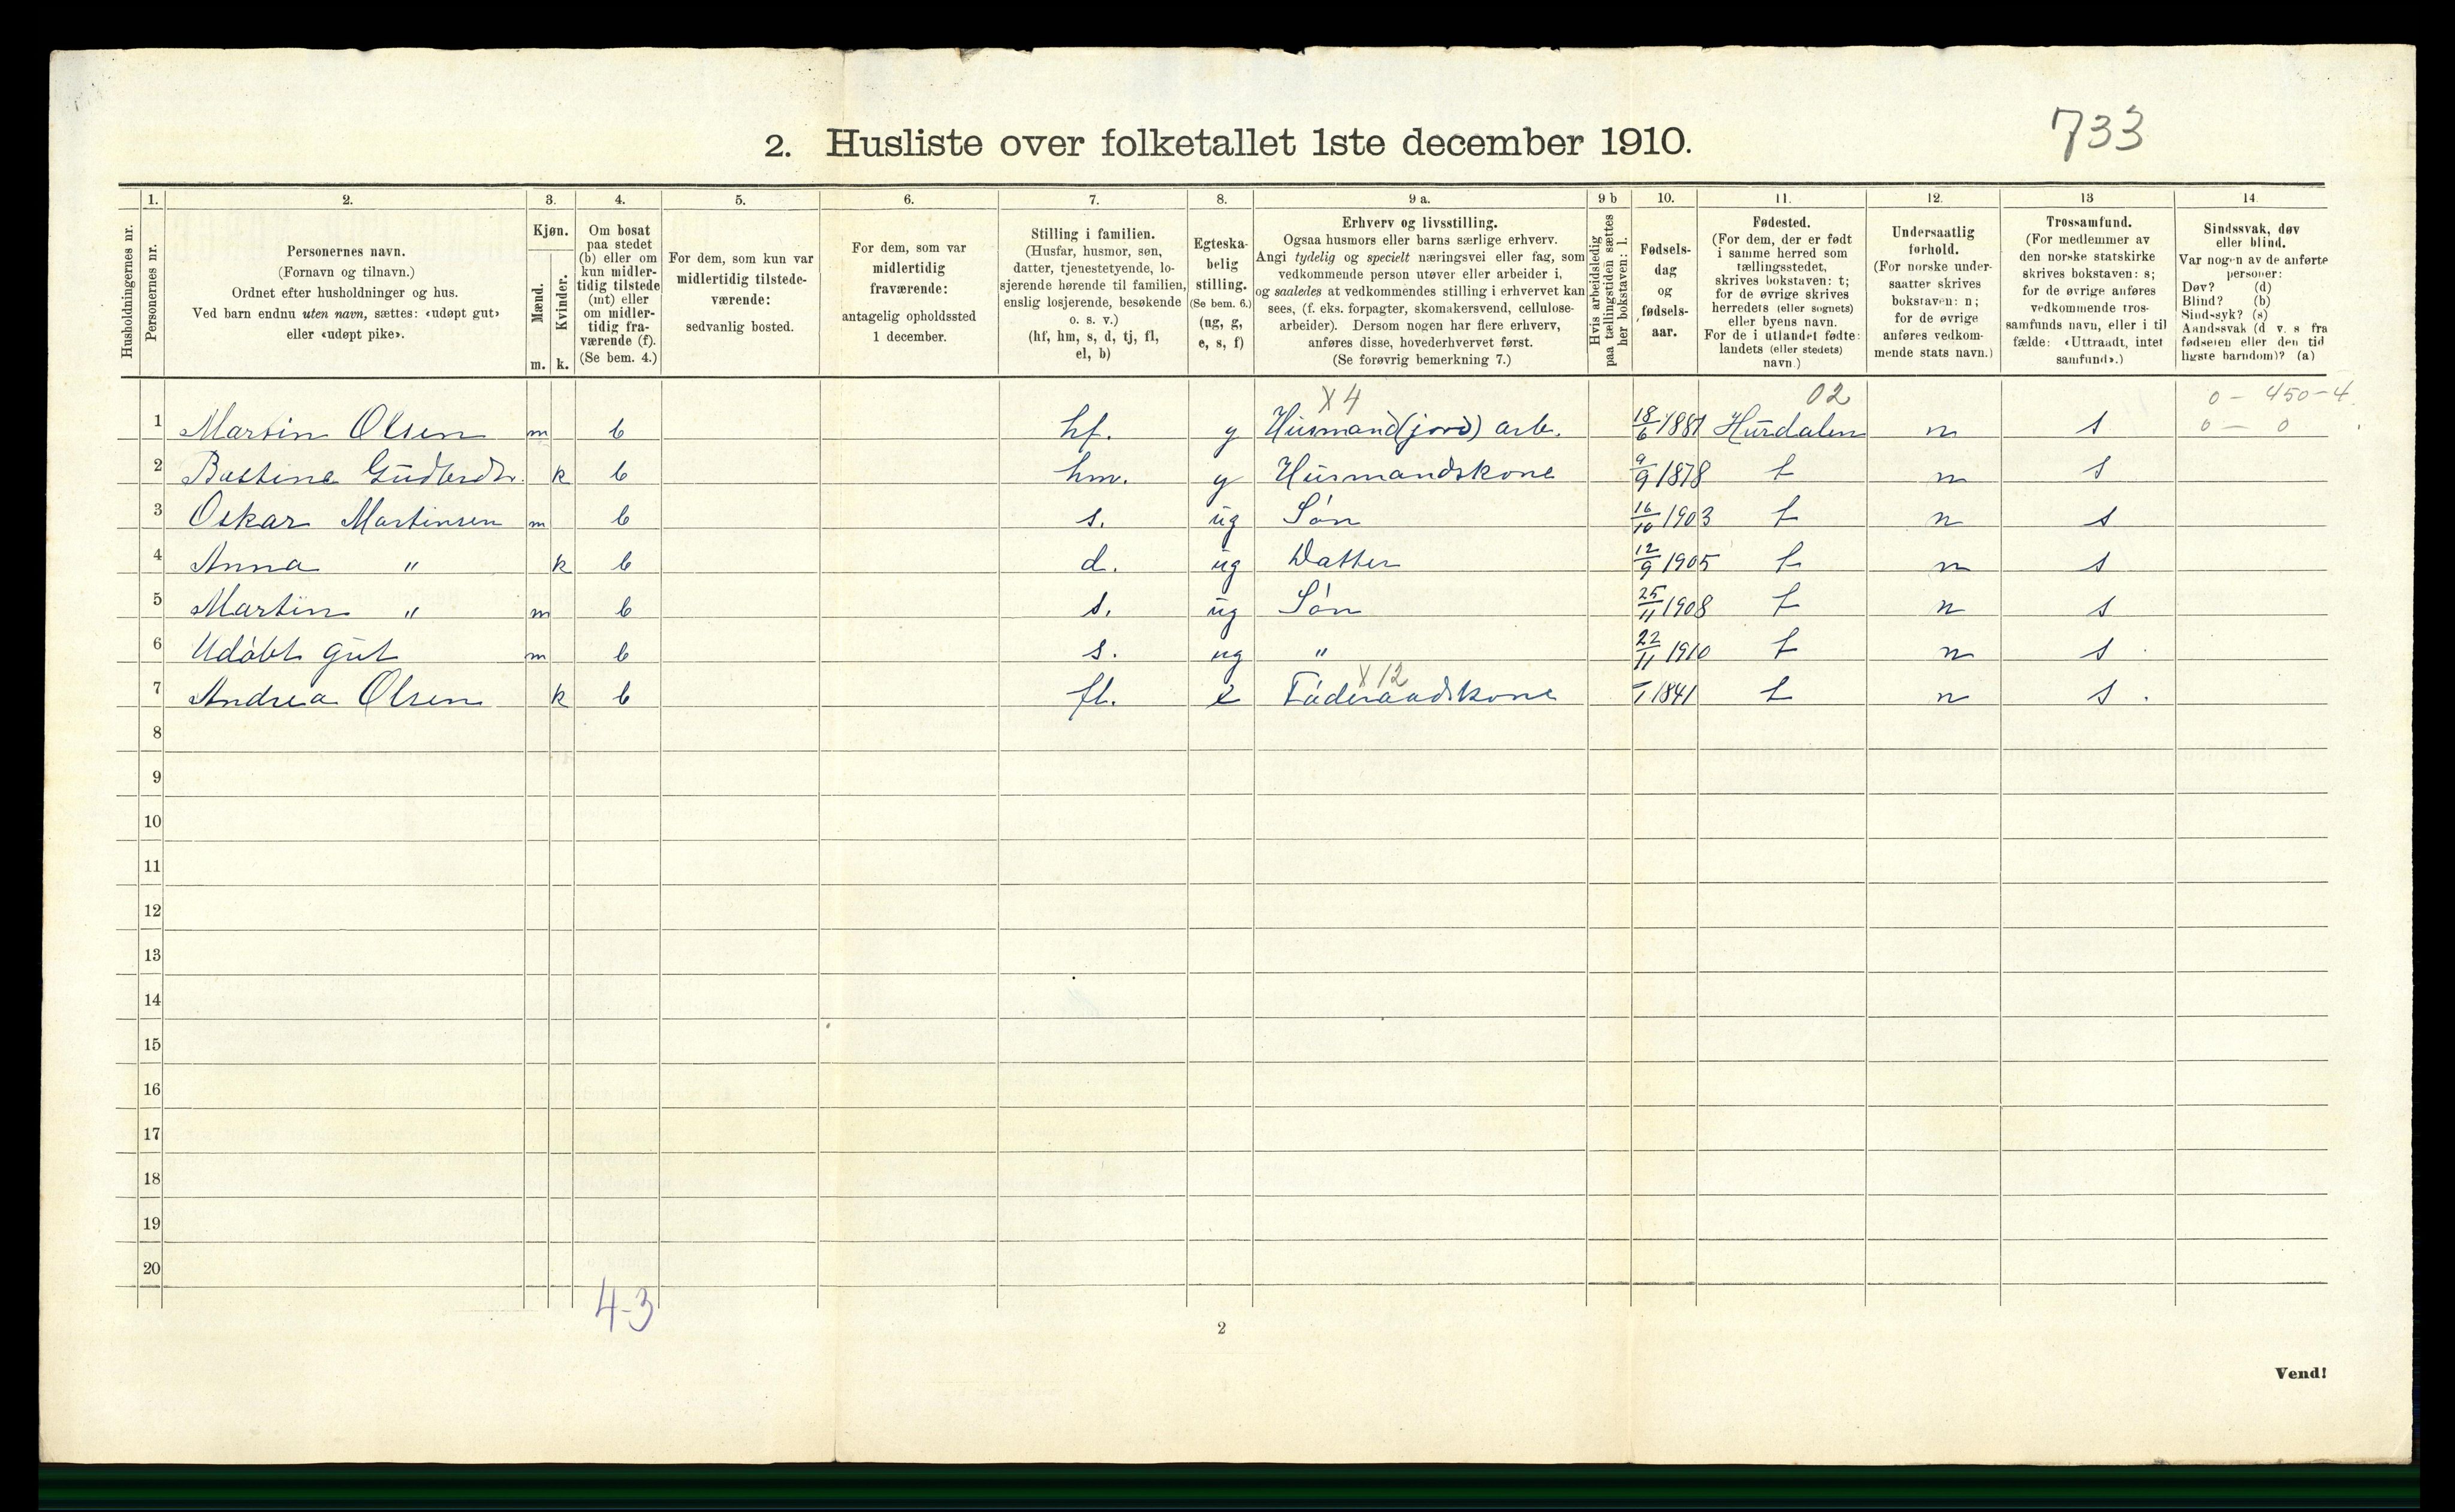 733
2. Husliste over folketallet 1ste december 1910.
Husholdningernes nr.
1.
Personernes nr.
2.
Personernes navn.
(Fornavn og tilnavn.)
Ordnet efter husholdninger og hus.
Ved barn endnu uten navn, sættes: «udøpt gut»
eller «udøpt pike».
3.
Kjøn.
Mænd.
Kvinder.
m. k.
4.
Om bosat
paa stedet
(b) eller om
kun midler-
tidig tilstede
(mt) eller
om midler-
tidig fra-
værende (f).
(Se bem. 4.)
5.
For dem, som kun var
midlertidig tilstede-
værende:
sedvanlig bosted.
6.
For dem, som var
midlertidig
fraværende:
antagelig opholdssted
1 december.
7.
Stilling i familien.
(Husfar, husmor, søn,
datter, tjenestetyende, lo-
sjerende hørende til familien,
enslig losjerende, besøkende
o. s. v.)
(hf, hm, s, d, tj, fl,
el, b)
8.
Egteska-
belig
stilling.
(Se bem. 6.)
(ug, g,
e, s, f)
9 a.
Erhverv og livsstilling.
Ogsaa husmors eller barns særlige erhverv.
Angi tydelig og specielt næringsvei eller fag, som
vedkommende person utøver eller arbeider i,
og saaledes at vedkommendes stilling i erhvervet kan
sees, (f. eks. forpagter, skomakersvend, cellulose-
arbeider). Dersom nogen har flere erhverv,
anføres disse, hovederhvervet først.
(Se forøvrig bemerkning 7.)
9 b
Hvis arbeidsledig
paa tællingstiden sættes
her bokstaven: l.
10.
Fødsels-
dag
og
fødsels-
aar.
11.
Fødested.
(For dem, der er født
i samme herred som
tællingsstedet,
skrives bokstaven: t;
for de øvrige skrives
herredets (eller sognets)
eller byens navn.
For de i utlandet fødte:
landets (eller stedets)
navn.)
12.
Undersaatlig
forhold.
(For norske under-
saatter skrives
bokstaven: n;
for de øvrige
anføres vedkom-
mende stats navn.)
13
Trossamfund.
(For medlemmer av
den norske statskirke
skrives bokstaven: s;
for de øvrige anføres
vedkommende tros-
samfunds navn, eller i til
fælde: «Uttraadt, intet
samfund».)
14
Sindssvak, døv
eller blind.
Var nogen av de anførte
personer:
Døv? (d)
Blind? (b)
Sindssyk? (s)
Aandssvak (d v. s fra
fødselen eller den tid
ligste barndom)? (a)
X 4 02 0 - 450-4
1 Martin Olsen m b hf. g Husmand (jord) arb. 18/6 1881 Hurdalen n s 0 - 0
2 k b hm. g Husmandskone 9/9 1878 t n s
3 Oskar Martinsen m b s. ug Søn 16/10 1903 t n s
4 Anna " k b d. ug Datter 12/9 1905 t n s
5 Martin " m b s. ug Søn 25/11 1908 t n s
6 Udøbt gut m b s. ug " 22/11 1910 t n s.
X 12
7 Andrea Olsen k b fl. e Føderaadskone 1841 t n s.
8
9
10
11
12
13
14
15
16
17
18
19
20
4-3
2
Vend!